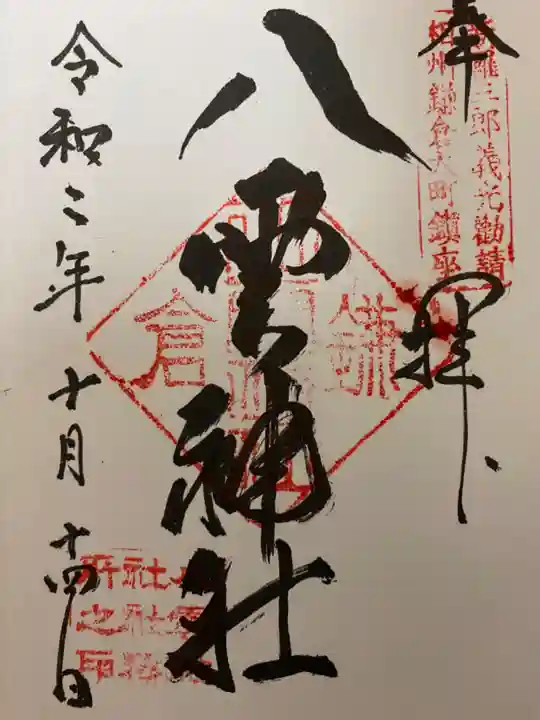 奉拝
新羅三郎義光勧請
相州鎌倉大町鎮座
八雲神社
鎌倉
八雲神
社社務
所之印
令和二年十月十四日